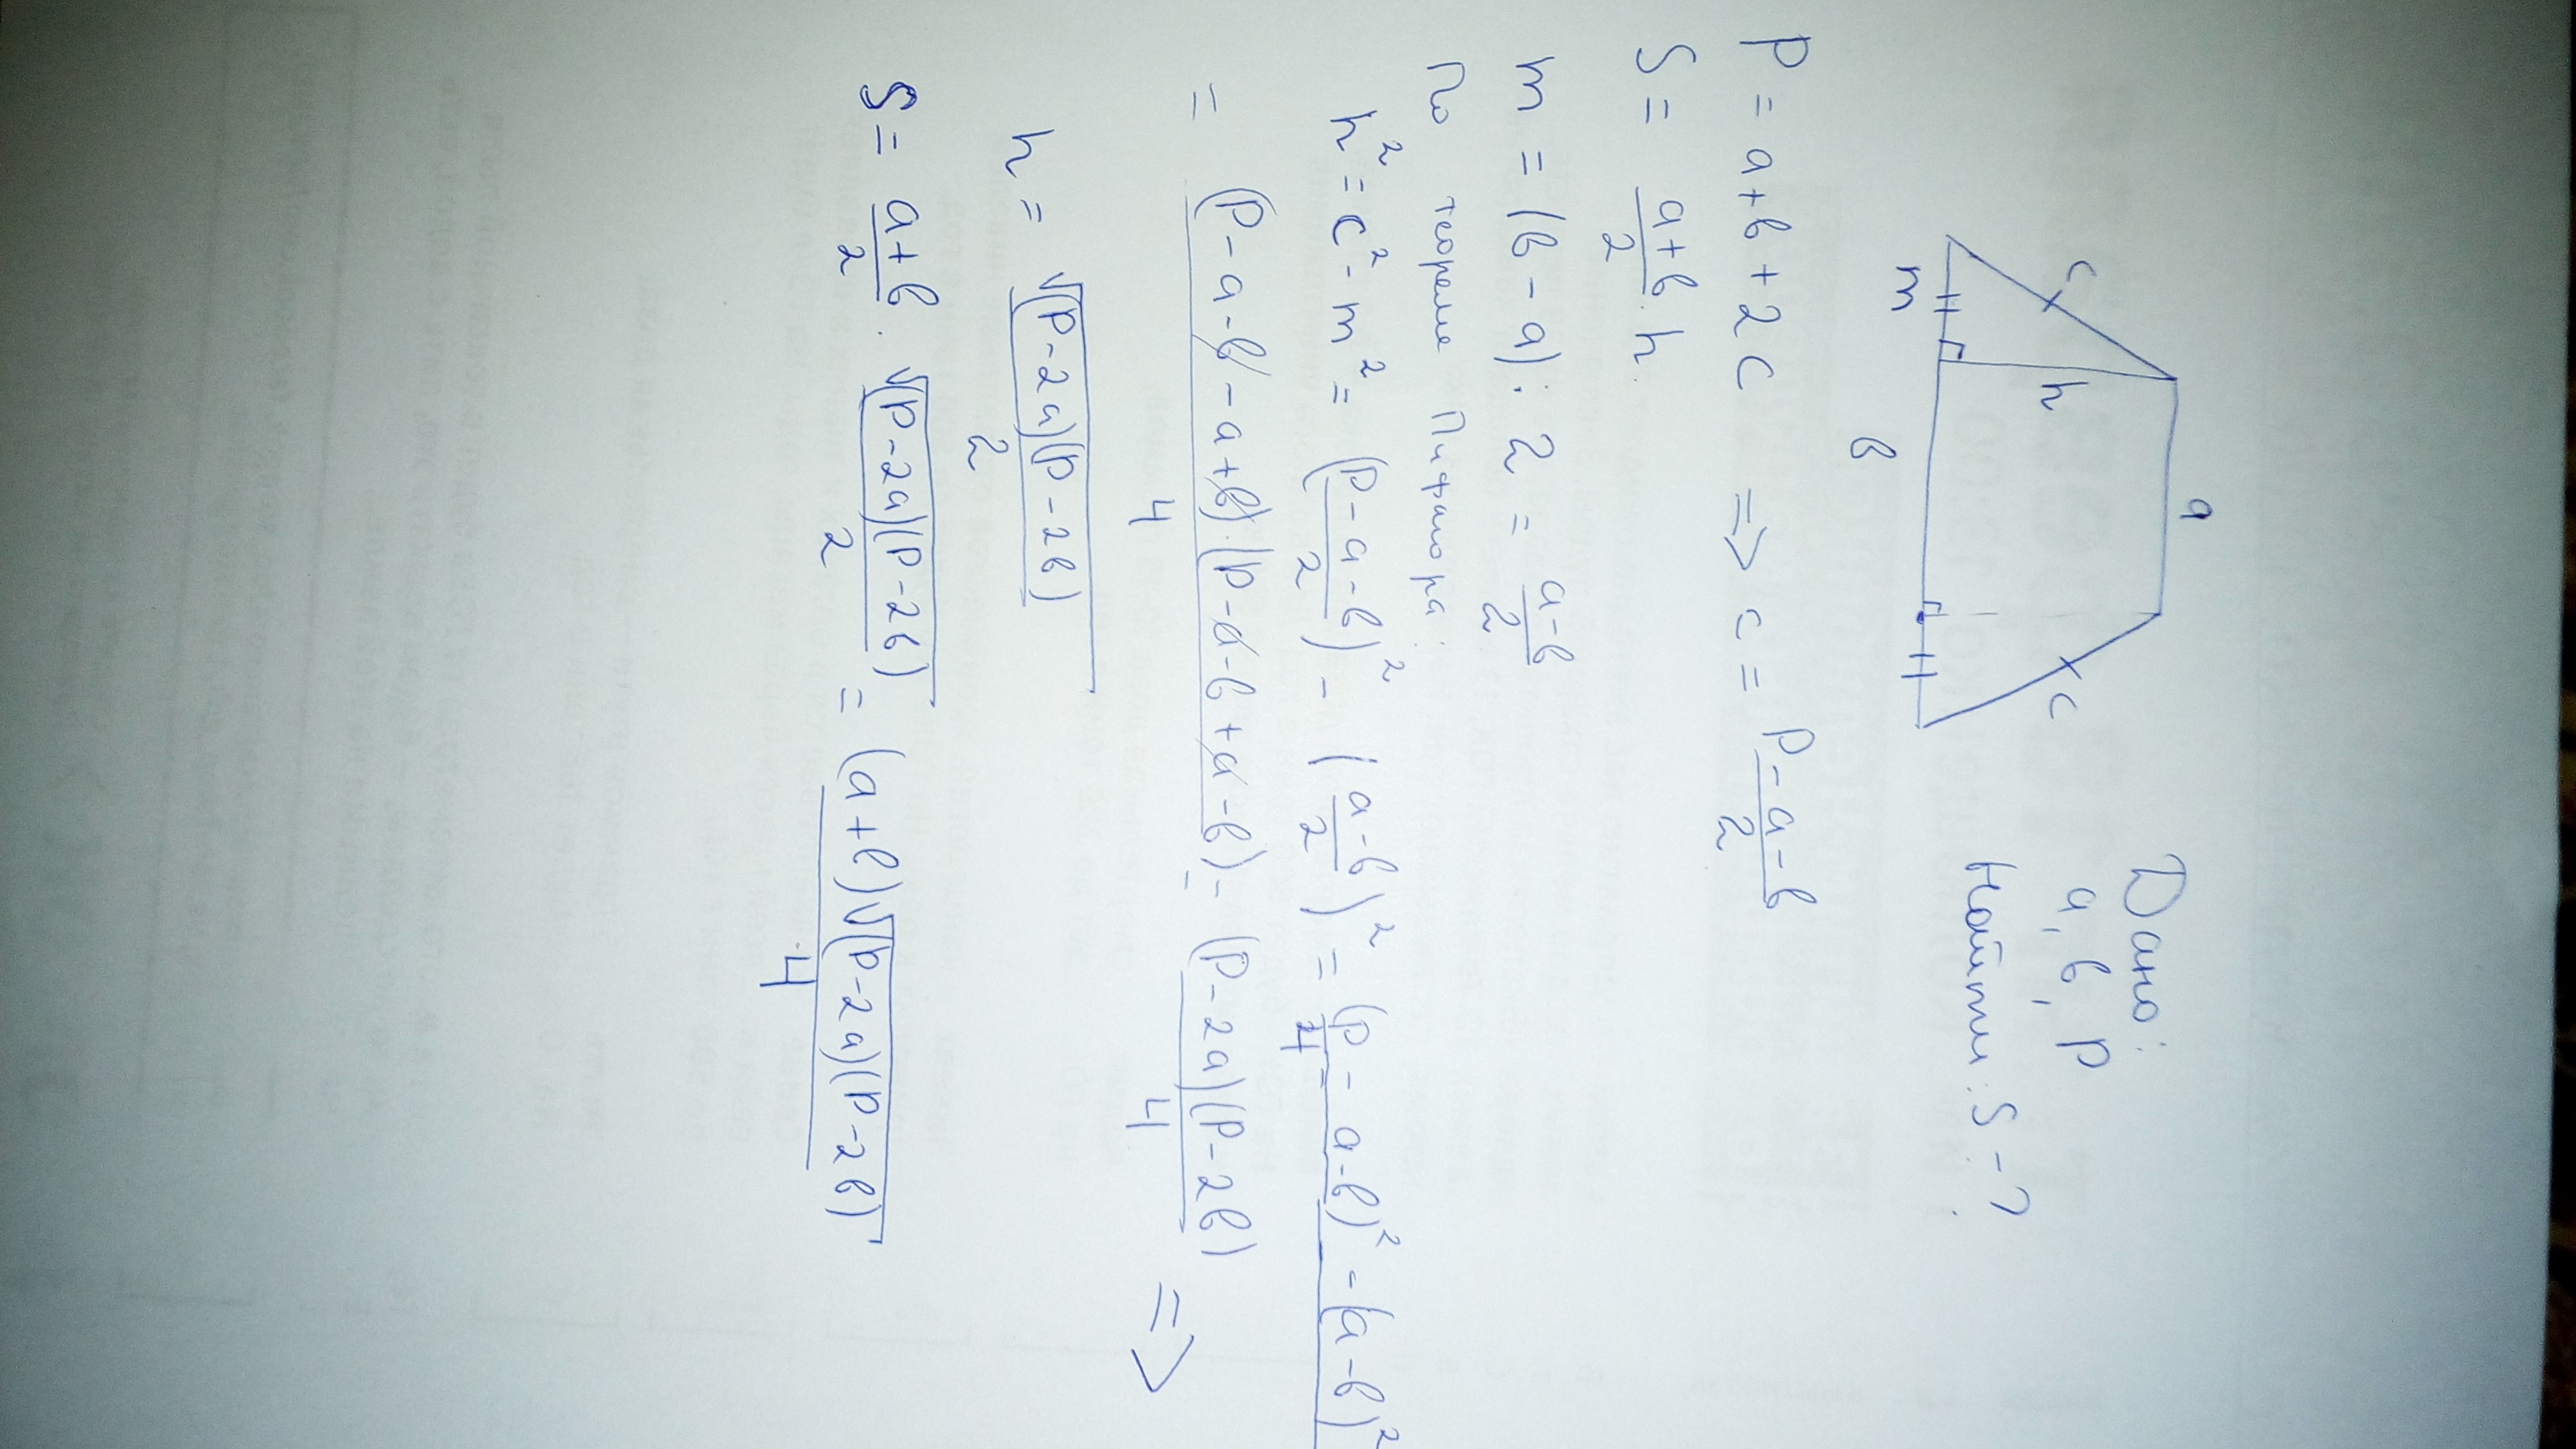 a
Дано:
c h c
a, в, P
m в
Найти: S - ?
P = a + в + 2c => c = (P - a - в)/2
S = (a + в)/2 · h
m = (в - a) : 2 = (a - в)/2
По теореме Пифагора:
h² = c² - m² = ((P - a - в)/2)² - ((a - в)/2)² = ((P - a - в)² - (a - в)²)/4
= ((P - a - в - a + в) · (P - a - в + a - в))/4 = ((P - 2a)(P - 2в))/4 =>
h = √((P - 2a)(P - 2в))/2
S = (a + в)/2 · √((P - 2a)(P - 2в))/2 = ((a + в)√((P - 2a)(P - 2в)))/4